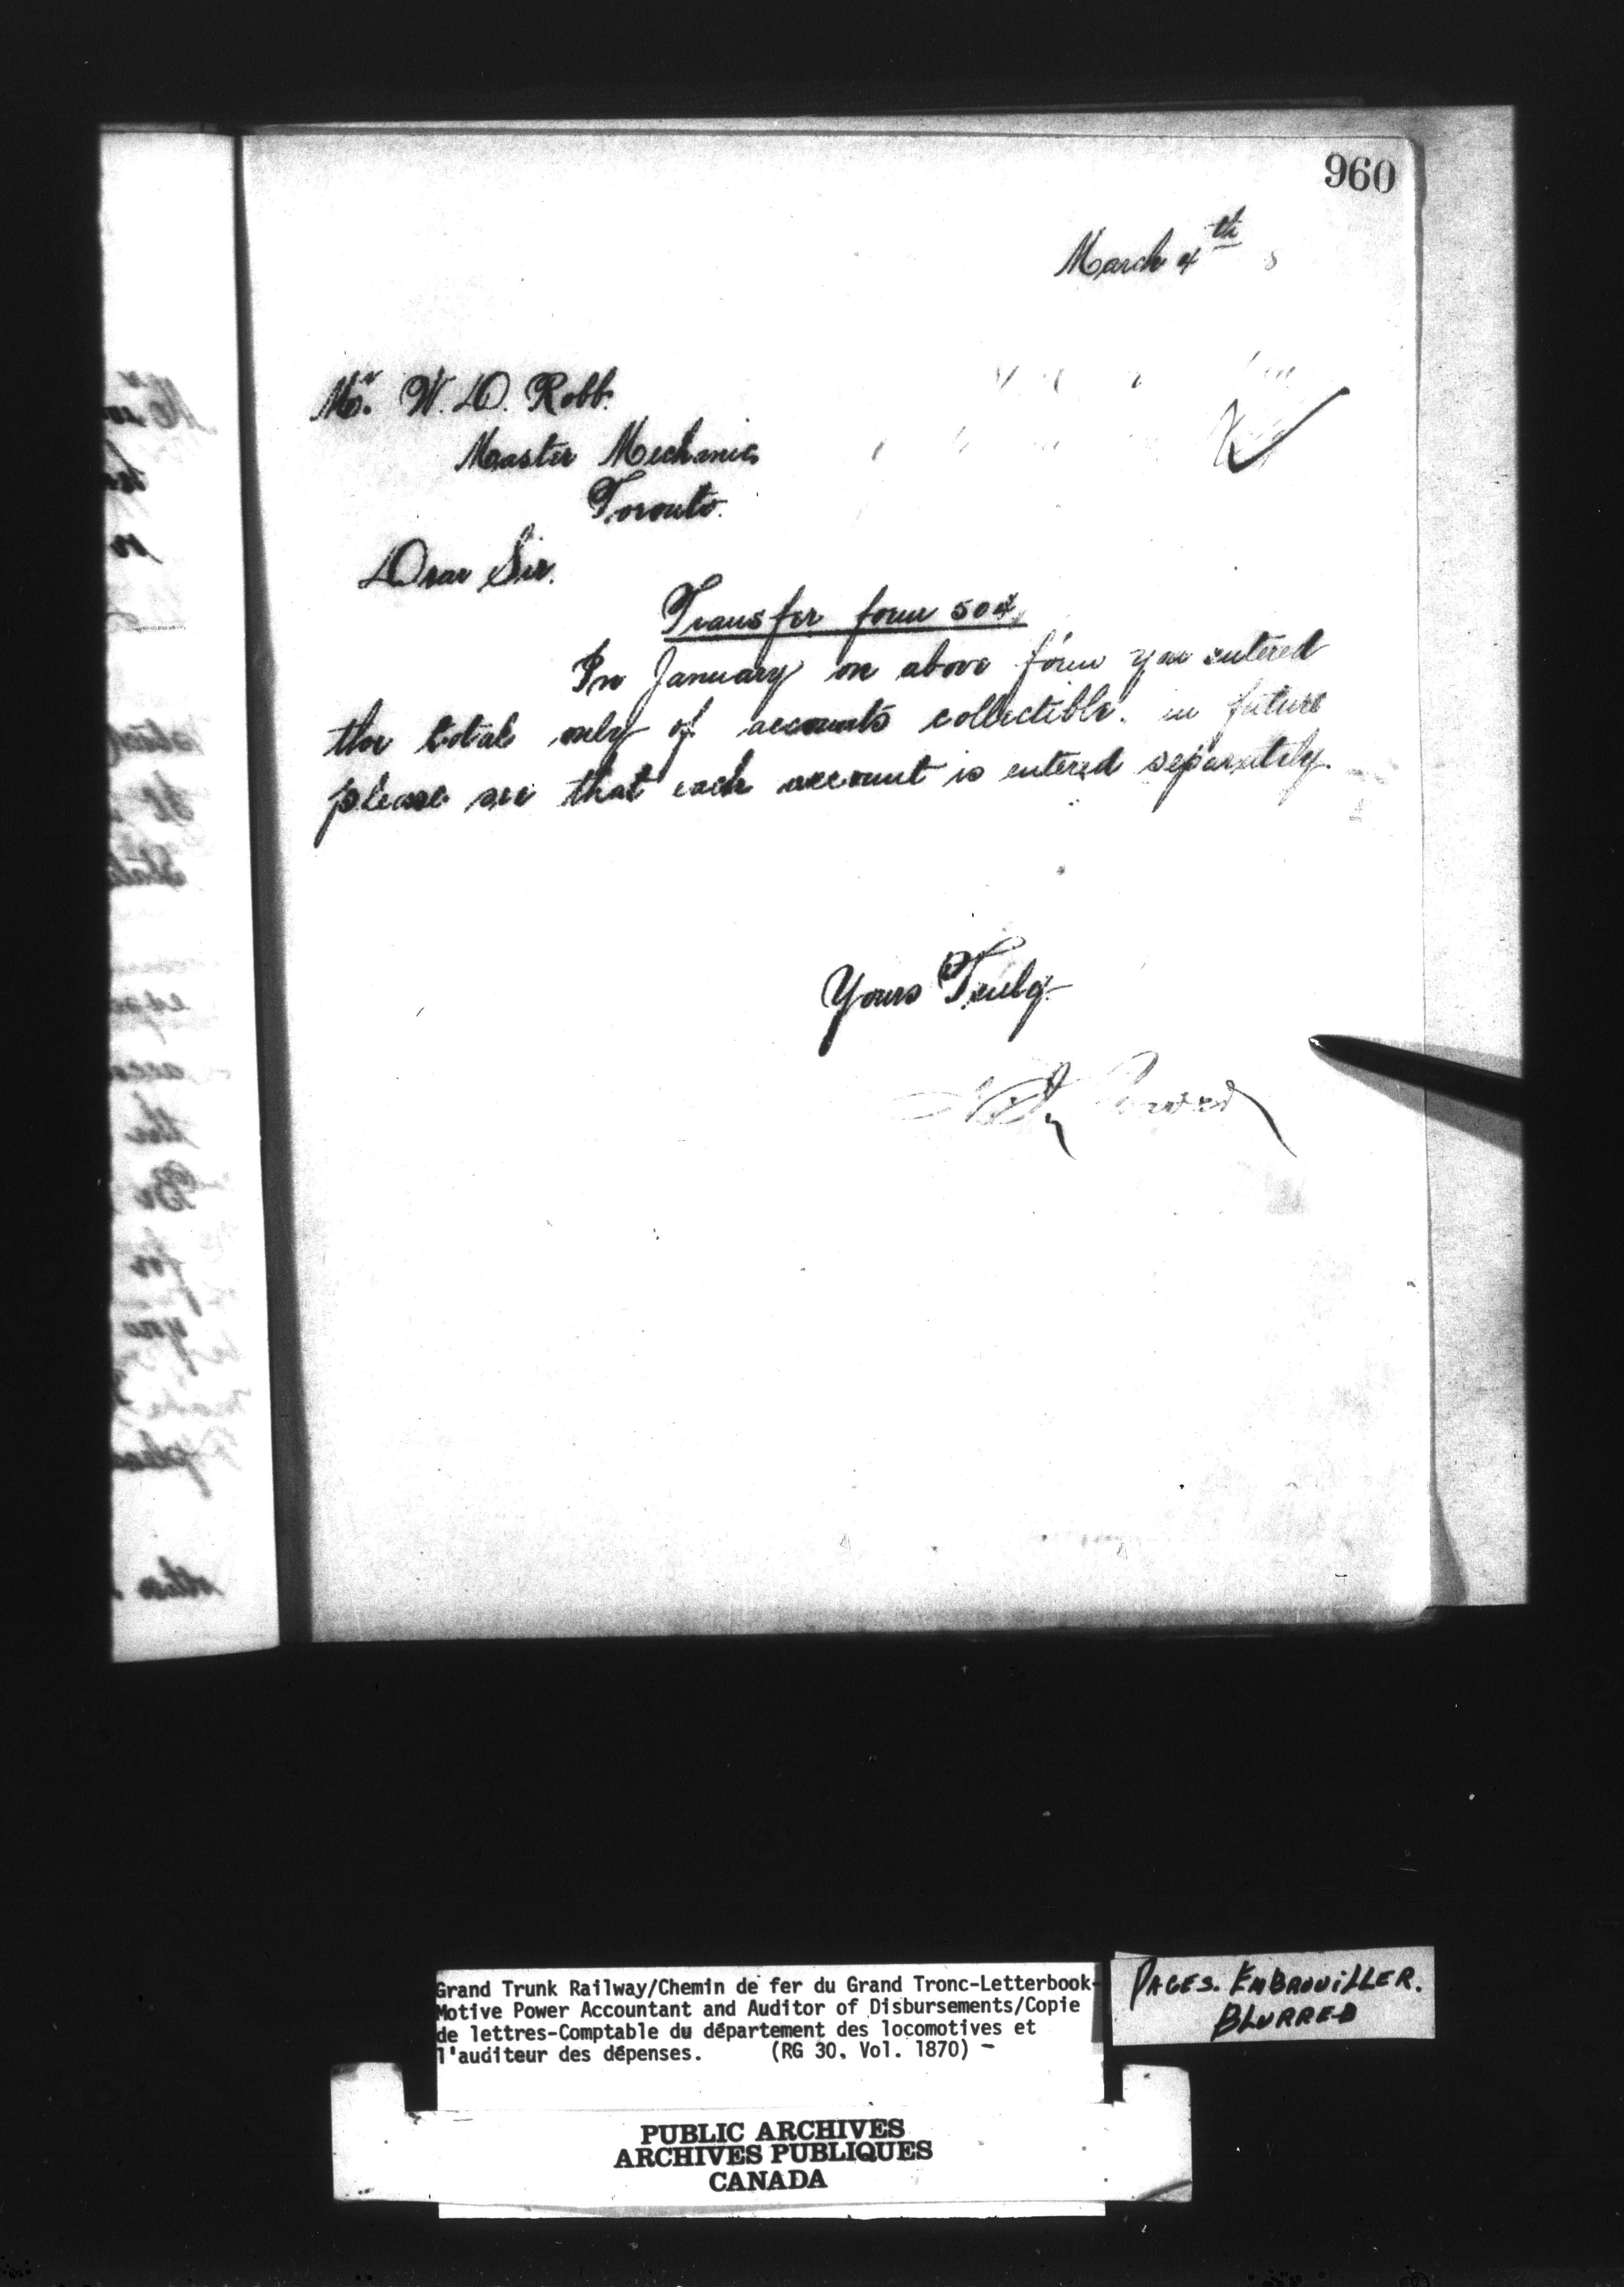 960
March 4th
Mr. W. D. Robb.
Master Mechanic
Toronto.
Dear Sir.
Transfer form 504.
In January on above form you entered
the total only of accounts collectible. in future
please see that each account is entered separately.
Yours Truly
Grand Trunk Railway/Chemin de fer du Grand Tronc-Letterbook-
Motive Power Accountant and Auditor of Disbursements/Copie
de lettres-Comptable du département des locomotives et
l'auditeur des dépenses. (RG 30. Vol. 1870) -
PAGES. EMBROUILLER.
BLURRED
PUBLIC ARCHIVES
ARCHIVES PUBLIQUES
CANADA